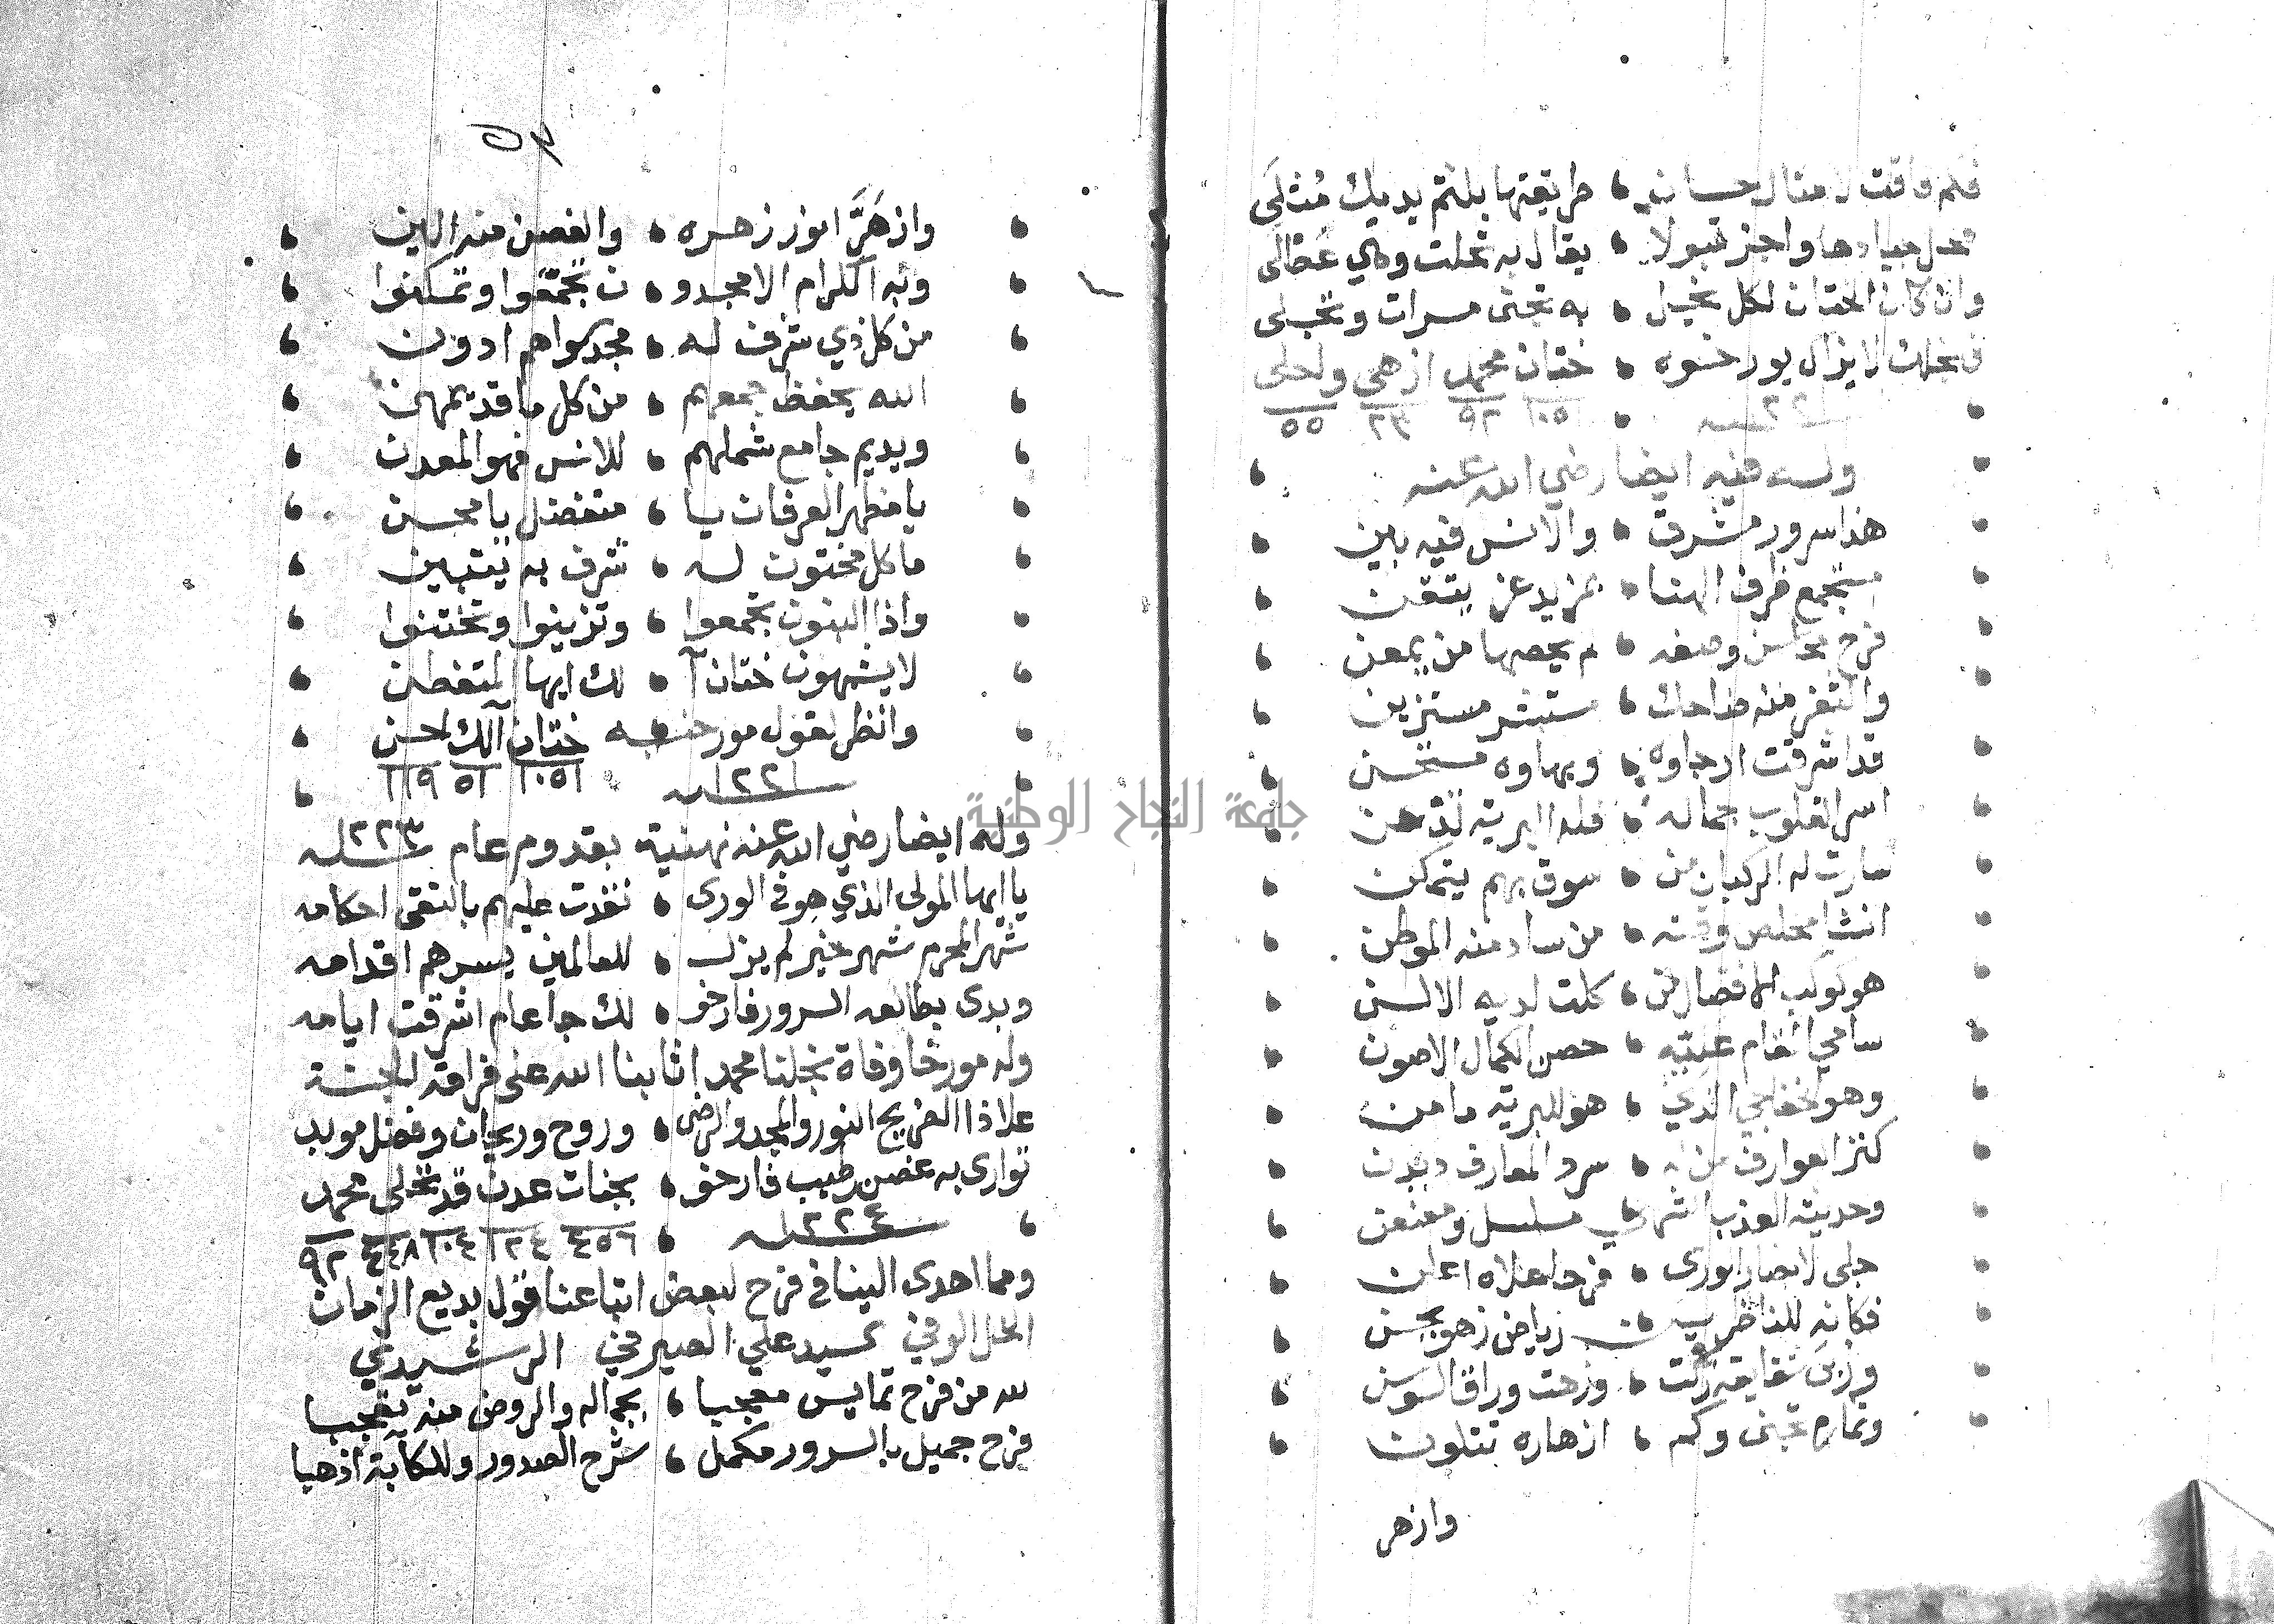 طريقتها بلثم يديك مثلى
واجز قبولا يقال به تحلت وهي عطلى
وان كان الختان لكل نجيل به تجنى مسرات وتجلى
لا يزال يورخوه ختان محمد ازهى واحلى
١٢٢١ ١٠٥١ ٩٢ ٢٣ ٥٥
وله فيه ايضا رضي الله عنه
هذا سرور مشرق والانس فيه باين
مستجمع طرف الهنا بمزيد عز يتقن
فرح محاسن وصفه لم يحصها من يمعن
والثغر منه ضاحك مستبشر مستزين
قد اشرقت ارجاوه وبهاوه مستحسن
اسر القلوب جماله فله البرية تذعن
سارت له الركبان من سوق بهم يتمكن
انشا مخلص وقته من ساد منه الموطن
هو كوكب الافضال من كلت لديه الالسن
سامي المقام عليّه حصن الكمال الاصون
وهو الخفاجي الذي هو للبرية مامن
كنز العوارف من له سرد المعارف ديدن
وحديثه العذب الشهي مسلسل ومعنعن
جلى لابصار الورى فرحا علاه اعلن
فكانه للناظرين رياض زهو تحسن
شقايقه زكت وزهت وراق السوسن
وثماره تجنى وكم ازهاره تتلون
وازهر
٥٣
وازهرّ انوز زهره والغصن منه الين
وبه الكرام الامجدو ن تجمعوا وتمكنوا
من كل ذي شرف له مجد سواهم ادون
الله يحفظ جمعهم من كل ما قد يمهن
ويديم جامع شملهم للانس فهو المعدن
يا مظهر العرفان يا متفضل يا محسن
ما كل مختون له شرف به يتبين
واذا البنون تجمعوا وتزينوا وتختنوا
لا يشبهون ختان آ لك ايها المتفطن
وانظر لقول مورخيه ختان آلك احسن
١٢٢١ ١٠٥١ ٥١ ١١٩
وله ايضا رضي الله عنه تهنية بقدوم عام ١٢٢٣
يا ايها المولى الذي هو في الورى نفذت عليهم بالتقى احكامه
شهر المحرم شهر خير لم يزل للعالمين يسرهم اقدامه
وبدى بطالعه السرور فارخو لك جا عام اشرقت ايامه
وله مورخا وفاة نجلنا محمد اثابنا الله على فراقه الجنة
علا ذا الضريح النور والمجد والرضى وروح وريحان وفضل مويد
توارى به غصن رطيب فارخو بجنات عدن قد تجلى محمد
١٢٢٤ ٤٥٦ ١٢٤ ١٠٤ ٤٤٨ ٩٢
ومما اهدى الينا في فرح لبعض اتباعنا قول بديع الزمان
الخل الوفي السيد علي الصيرفي الرشيدي
لله من فرح تمايس معجبا بجماله والروض منه تعجبا
فرح جميل بالسرور مكمل شرح الصدور وللكآبة اذهبا